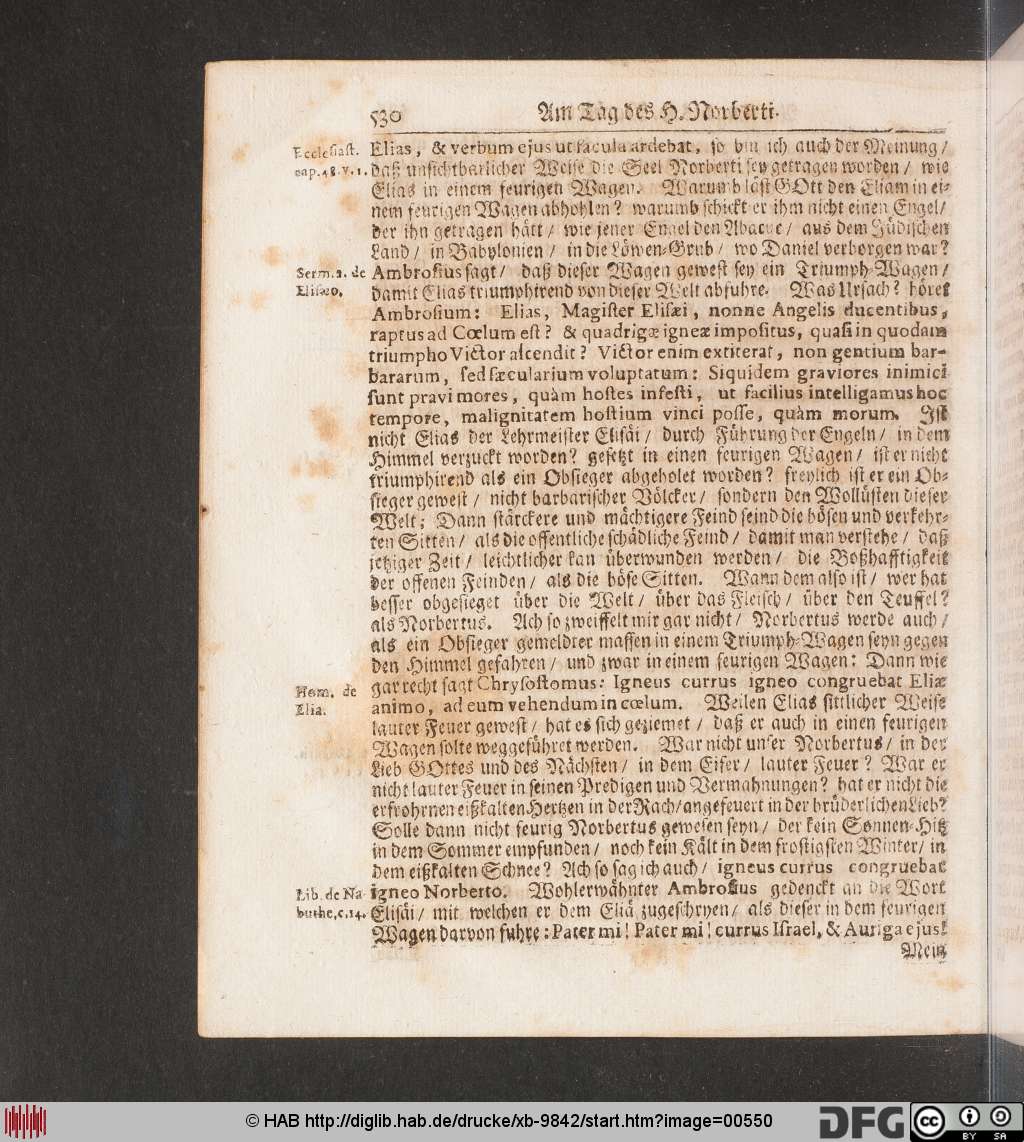 530 Am Tag des H. Norberti.
Ecclesiast.
cap. 48. v. 1.
Elias, & verbum ejus ut facula ardebat, so bin ich auch der Meinung/
daß unsichtbarlicher Weise die Seel Norberti sey getragen worden/ wie
Elias in einem feurigen Wagen. Warumb läst GOtt den Eliam in ei-
nem feurigen Wagen abhohlen? warumb schickt er ihm nicht einen Engel/
der ihn getragen hätt/ wie jener Engel den Abacuc/ aus dem Jüdischen
Land/ in Babylonien/ in die Löwen-Grub/ wo Daniel verborgen war?
Serm. 2. de
Elisæo.
Ambrosius sagt/ daß dieser Wagen gewest sey ein Triumph-Wagen/
damit Elias triumphirend von dieser Welt abfuhre. Was Ursach? höret
Ambrosium: Elias, Magister Elisæi, nonne Angelis ducentibus,
raptus ad Cœlum est? & quadrigæ igneæ impositus, quasi in quodam
triumpho Victor ascendit? Victor enim extiterat, non gentium bar-
bararum, sed sæcularium voluptatum: Siquidem graviores inimici
sunt pravi mores, quàm hostes infesti, ut facilius intelligamus hoc
tempore, malignitatem hostium vinci posse, quàm morum. Ist
nicht Elias der Lehrmeister Elisäi/ durch Führung der Engeln/ in dem
Himmel verzuckt worden? gesetzt in einen feurigen Wagen/ ist er nicht
triumphirend als ein Obsieger abgeholet worden? freylich ist er ein Ob-
sieger gewest/ nicht barbarischer Völcker/ sondern den Wollüsten dieser
Welt; Dann stärckere und mächtigere Feind seind die bösen und verkehr-
ten Sitten/ als die offentliche schädliche Feind/ damit man verstehe/ daß
jetziger Zeit/ leichtlicher kan überwunden werden/ die Boßhafftigkeit
der offenen Feinden/ als die böse Sitten. Wann dem also ist/ wer hat
besser obgesieget über die Welt/ über das Fleisch/ über den Teuffel?
als Norbertus. Ach so zweiffelt mir gar nicht/ Norbertus werde auch/
als ein Obsieger gemeldter massen in einem Triumph-Wagen seyn gegen
den Himmel gefahren/ und zwar in einem feurigen Wagen: Dann wie
Hom. de
Elia.
gar recht sagt Chrysostomus: Igneus currus igneo congruebat Eliæ
animo, ad eum vehendum in cœlum. Weilen Elias sittlicher Weise
lauter Feuer gewest/ hat es sich geziemet/ daß er auch in einen feurigen
Wagen solte weggeführet werden. War nicht unser Norbertus/ in der
Lieb GOttes und des Nächsten/ in dem Eifer/ lauter Feuer? War er
nicht lauter Feuer in seinen Predigen und Vermahnungen? hat er nicht die
erfrohrnen eißkalten Hertzen in der Rach/ angefeuert in der brüderlichen Lieb?
Solle dann nicht feurig Norbertus gewesen seyn/ der kein Sonnen-Hitz
in dem Sommer empfunden/ noch kein Kält in dem frostigsten Winter/ in
dem eißkalten Schnee? Ach so sag ich auch/ igneus currus congruebat
Lib. de Na-
buthe, c. 14.
igneo Norberto. Wohlerwähnter Ambrosius gedenckt an die Wort
Elisäi/ mit welchen er dem Eliä zugeschryen/ als dieser in dem feurigen
Wagen darvon fuhre: Pater mi! Pater mi! currus Israel, & Auriga ejus!
Mein
© HAB http://diglib.hab.de/drucke/xb-9842/start.htm?image=00550
DFG
cc
BY SA